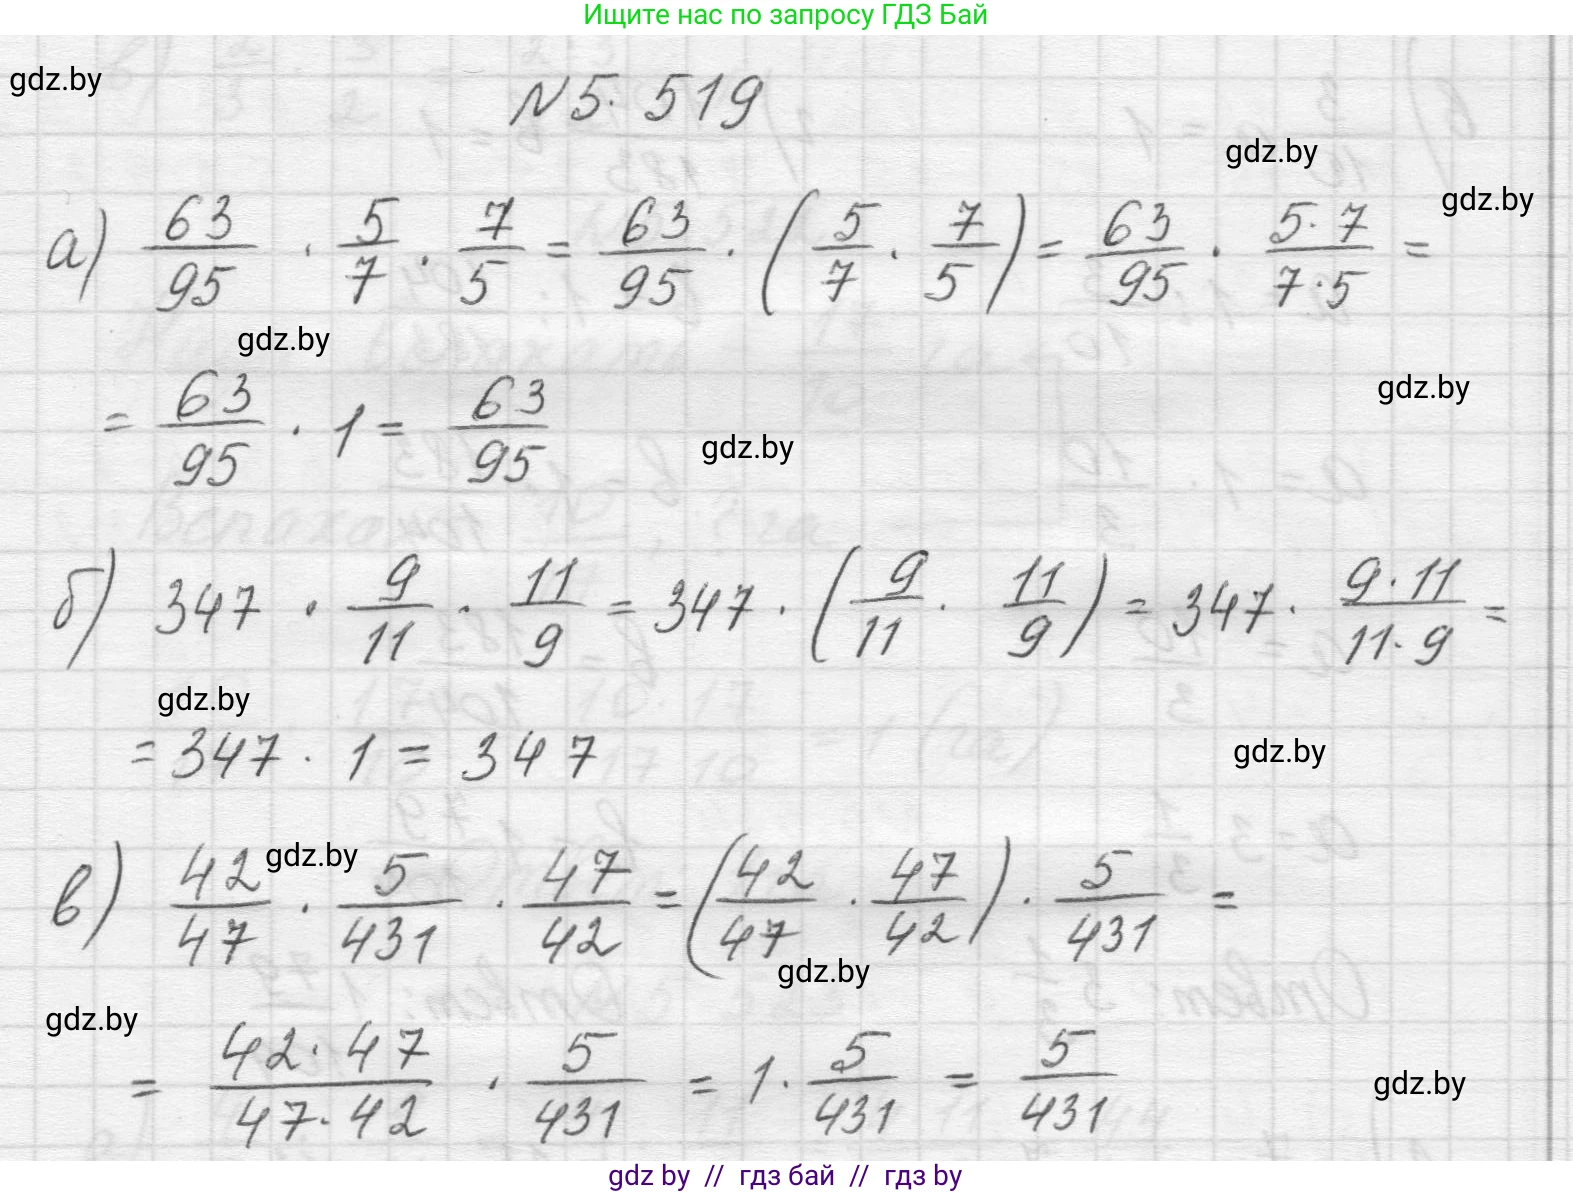 Ищите нас по запросу ГДЗ Бай
gdz.by
№5.519
gdz.by
gdz.by
а) 63/95 · 5/7 · 7/5 = 63/95 · (5/7 · 7/5) = 63/95 · 5·7/7·5 =
gdz.by
gdz.by
= 63/95 · 1 = 63/95
gdz.by
б) 347 · 9/11 · 11/9 = 347 · (9/11 · 11/9) = 347 · 9·11/11·9 =
gdz.by
= 347 · 1 = 347
gdz.by
gdz.by
в) 42/47 · 5/431 · 47/42 = (42/47 · 47/42) · 5/431 =
gdz.by
gdz.by
= 42·47/47·42 · 5/431 = 1 · 5/431 = 5/431
gdz.by
gdz by // гдз бай // гдз by